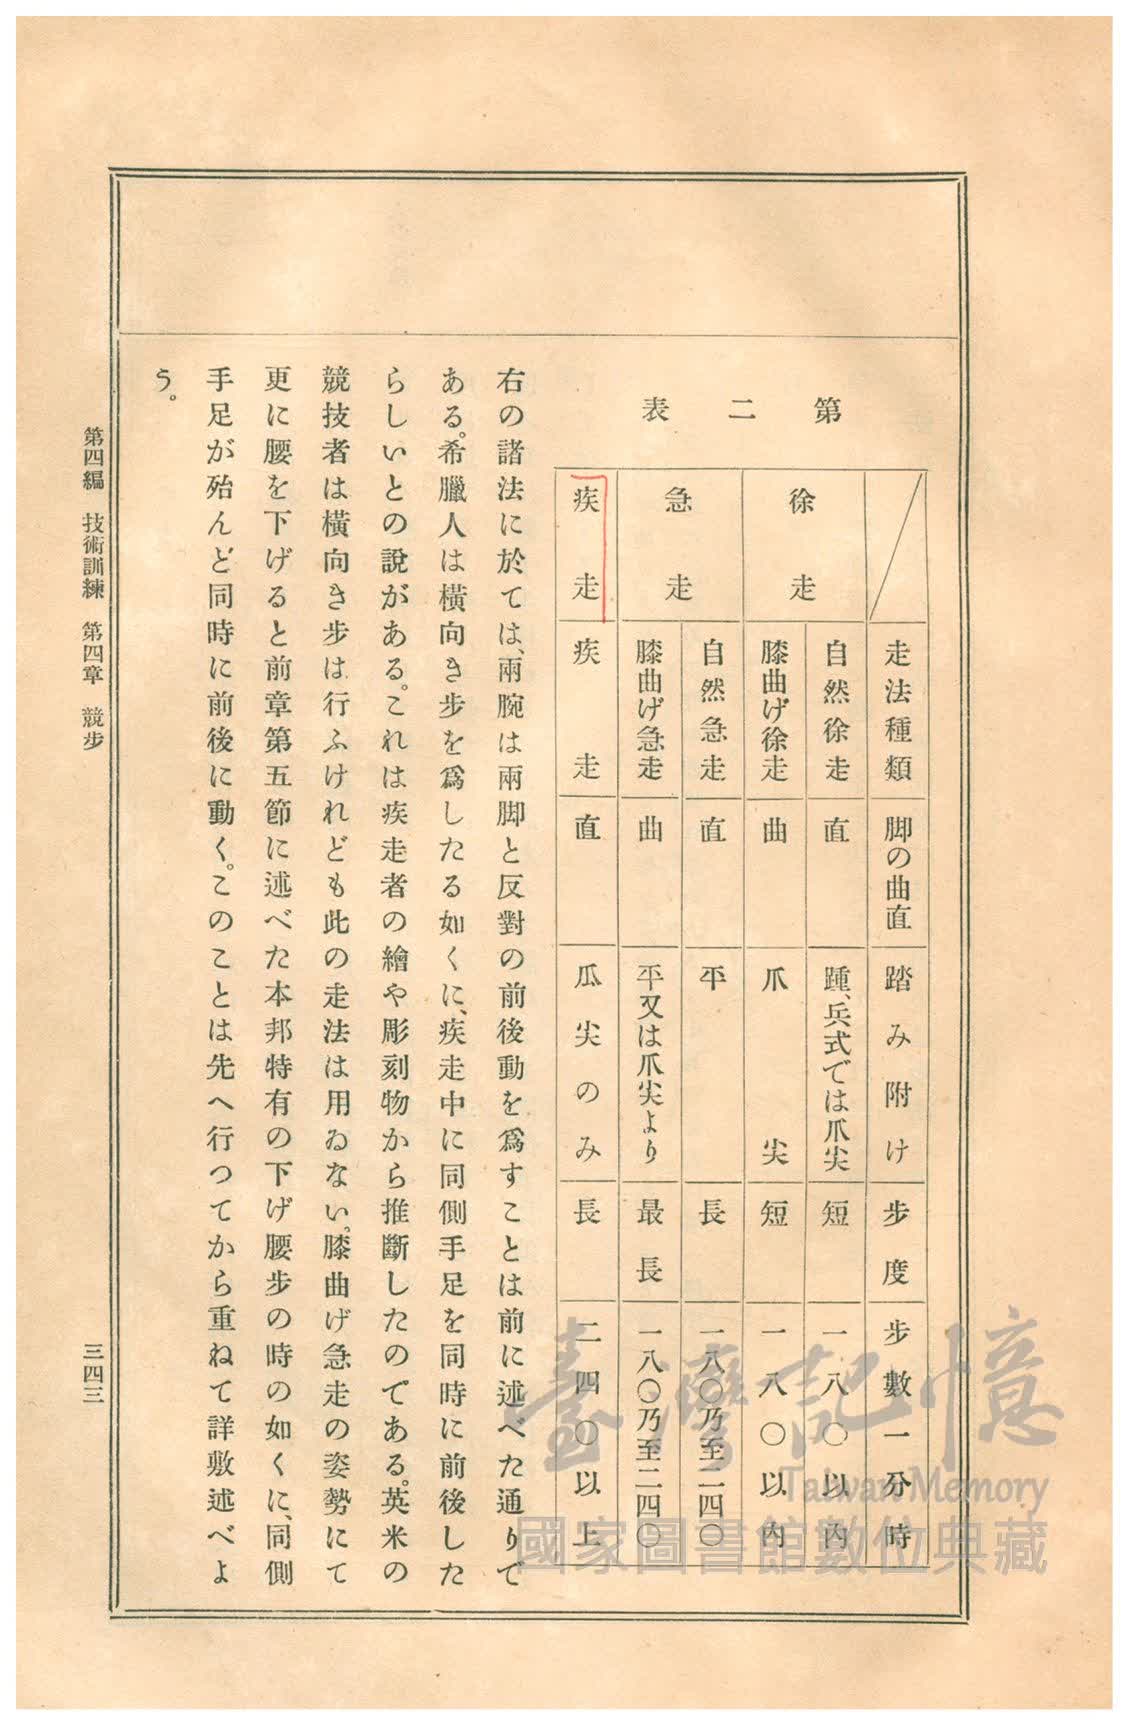 第二表
走法種類 脚の曲直 踏み附け 步度 步數一分時
徐走 自然徐走 直 踵、兵式では爪尖 短 一八〇以內
膝曲げ徐走 曲 爪尖 短 一八〇以內
急走 自然急走 直 平 長 一八〇乃至二四〇
膝曲げ急走 曲 平又は爪尖より 最長 一八〇乃至二四〇
疾走 疾走 直 瓜尖のみ 長 二四〇以上
右の諸法に於ては、兩腕は兩脚と反對の前後動を爲すことは前に述べた通りで
ある。希臘人は橫向き步を爲したる如くに、疾走中に同側手足を同時に前後した
らしいとの說がある。これは疾走者の繪や彫刻物から推斷したのである。英米の
競技者は橫向き步は行ふけれども此の走法は用ゐない。膝曲げ急走の姿勢にて
更に腰を下げると前章第五節に述べた本邦特有の下げ腰步の時の如くに、同側
手足が殆んど同時に前後に動く。このことは先へ行つてから重ねて詳敷述べよ
う。
第四編 技術訓練 第四章 競步
三四三
臺灣記憶
Taiwan Memory
國家圖書館數位典藏